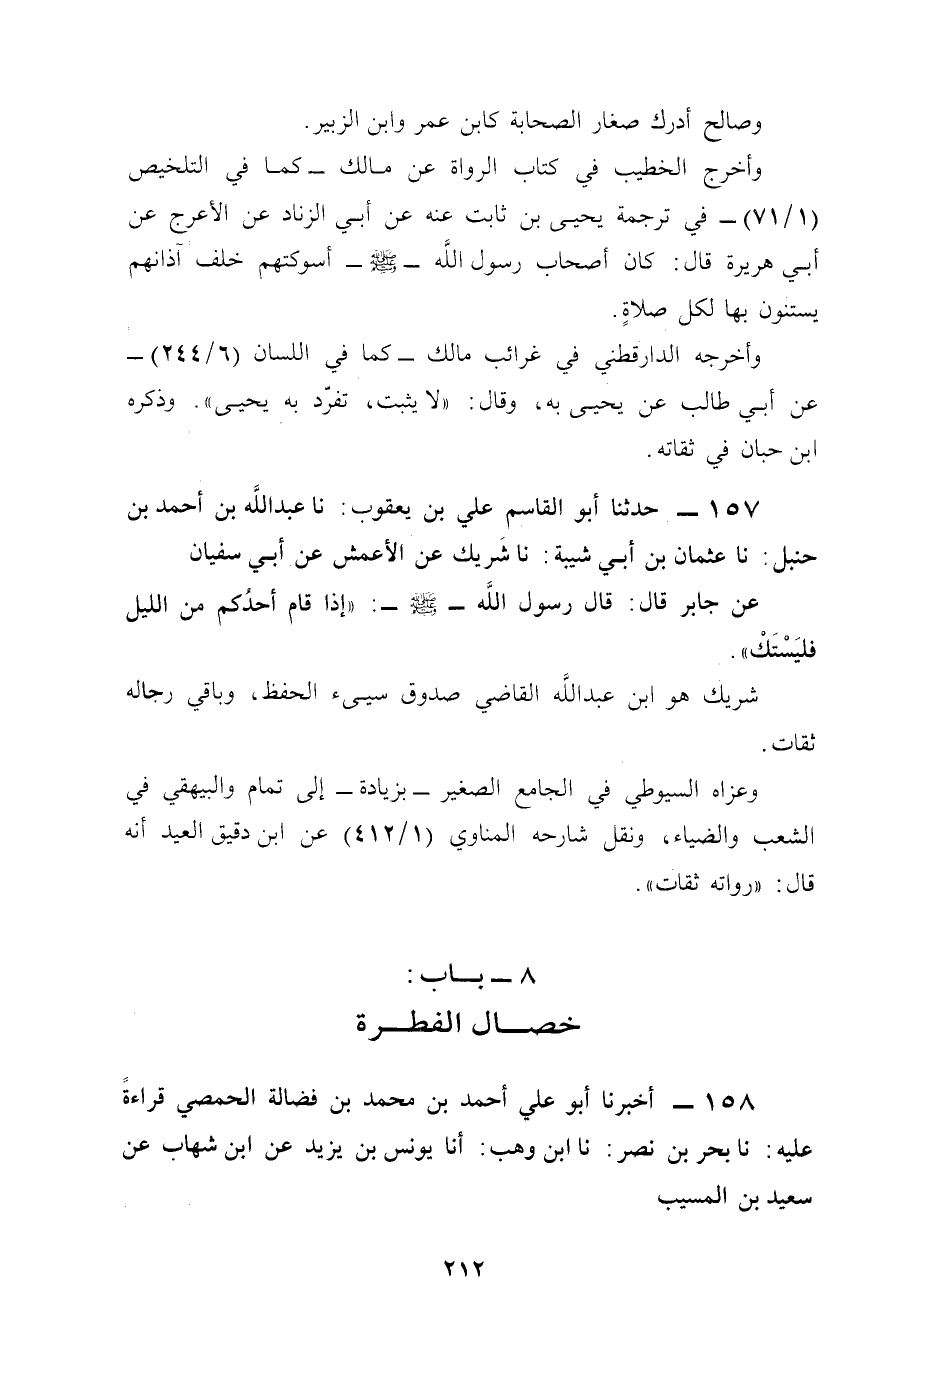 وصالح أدرك صغار الصحابة كابن عمر وابن الزبير.
وأخرج الخطيب في كتاب الرواة عن مالك ــ كما في التلخيص
(٧١/١) ــ في ترجمة يحيى بن ثابت عنه عن أبي الزناد عن الأعرج عن
أبي هريرة قال: كان أصحاب رسول اللَّه ــ ﷺ ــ أسوكتهم خلف آذانهم
يستنون بها لكل صلاةٍ.
وأخرجه الدارقطني في غرائب مالك ــ كما في اللسان (٢٤٤/٦) ــ
عن أبي طالب عن يحيى به، وقال: «لا يثبت، تفرّد به يحيى». وذكره
ابن حبان في ثقاته.
١٥٧ ــ حدثنا أبو القاسم علي بن يعقوب: نا عبداللَّه بن أحمد بن
حنبل: نا عثمان بن أبي شيبة: نا شَريك عن الأعمش عن أبي سفيان
عن جابر قال: قال رسول اللَّه ــ ﷺ ــ: «إذا قام أحدُكم من الليل
فليَسْتَكْ».
شريك هو ابن عبداللَّه القاضي صدوق سيىء الحفظ، وباقي رجاله
ثقات.
وعزاه السيوطي في الجامع الصغير ــ بزيادة ــ إلى تمام والبيهقي في
الشعب والضياء، ونقل شارحه المناوي (٤١٢/١) عن ابن دقيق العيد أنه
قال: «رواته ثقات».
٨ ــ بــاب:
خصـــال الفطــرة
١٥٨ ــ أخبرنا أبو علي أحمد بن محمد بن فضالة الحمصي قراءةً
عليه: نا بحر بن نصر: نا ابن وهب: أنا يونس بن يزيد عن ابن شهاب عن
سعيد بن المسيب
٢١٢